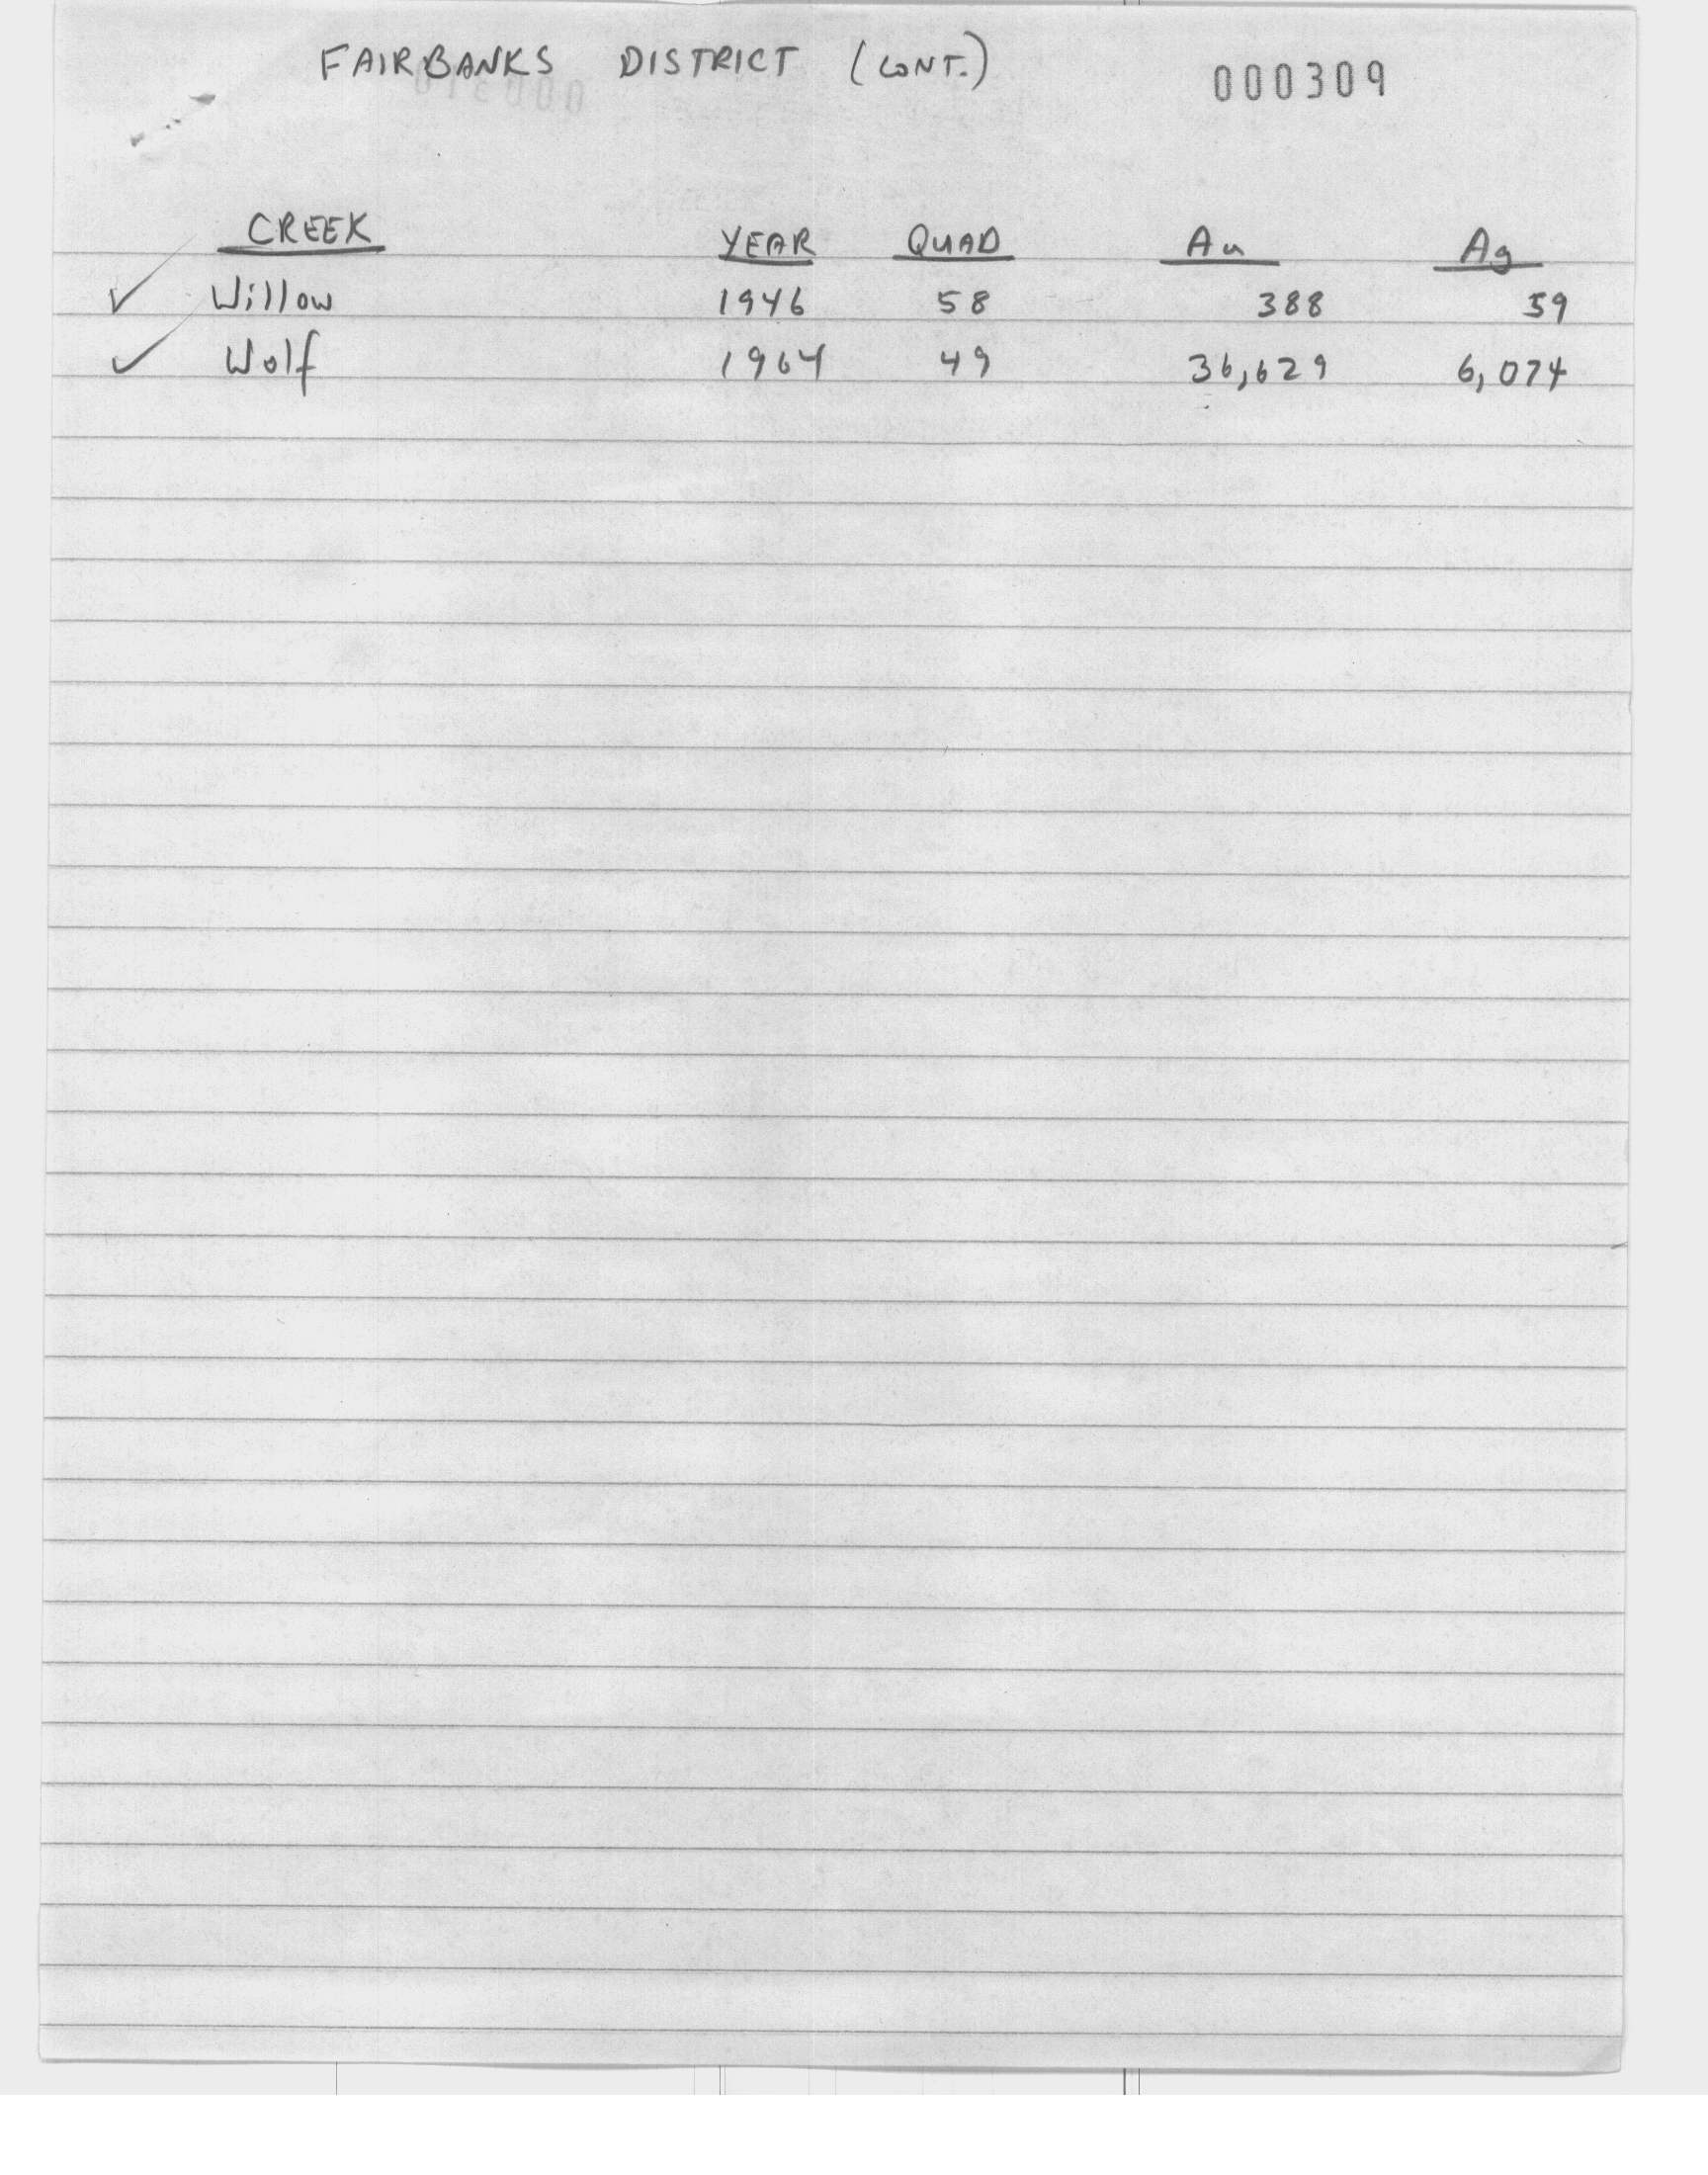 FAIRBANKS DISTRICT (CONT.) 000309
CREEK YEAR QUAD Au Ag
Willow 1946 58 388 59
Wolf 1964 49 36,629 6,074